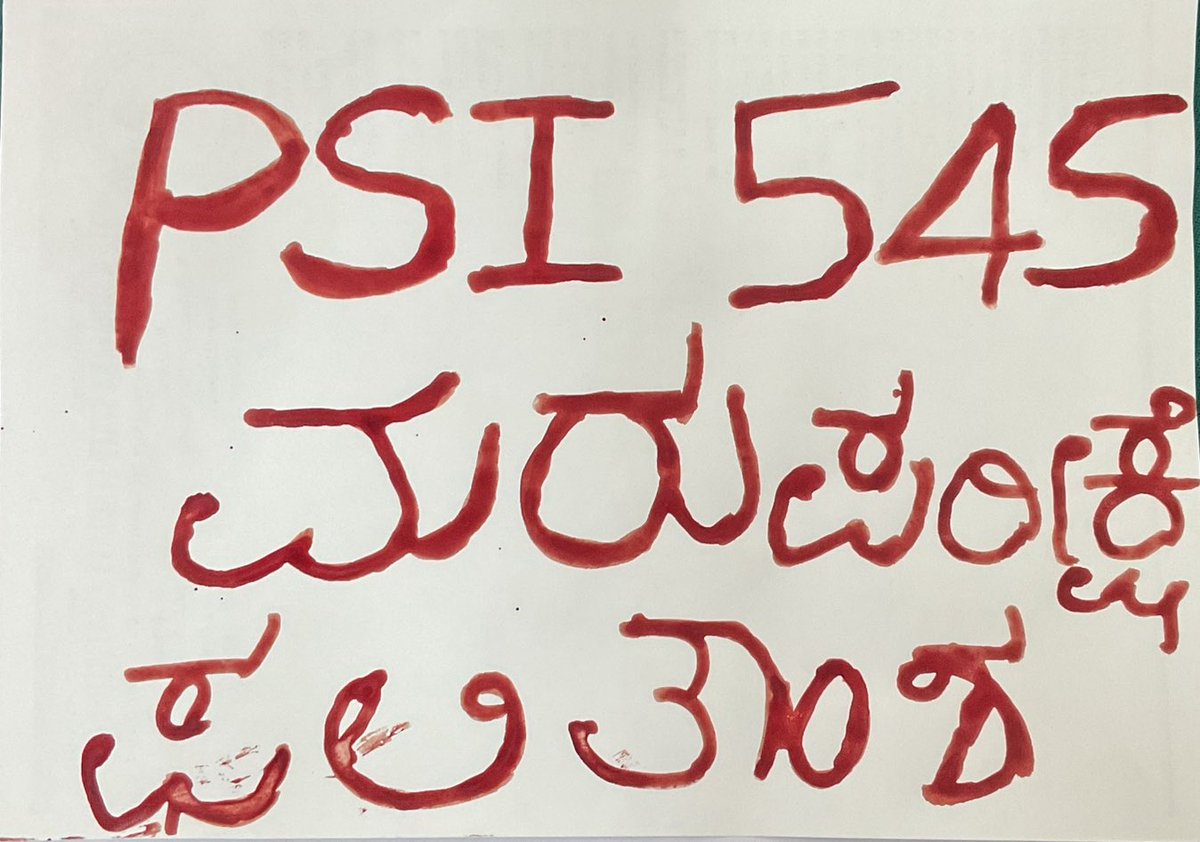 PSI 545
ಮರುಪರೀಕ್ಷೆ
ಫಲಿತಾಂಶ